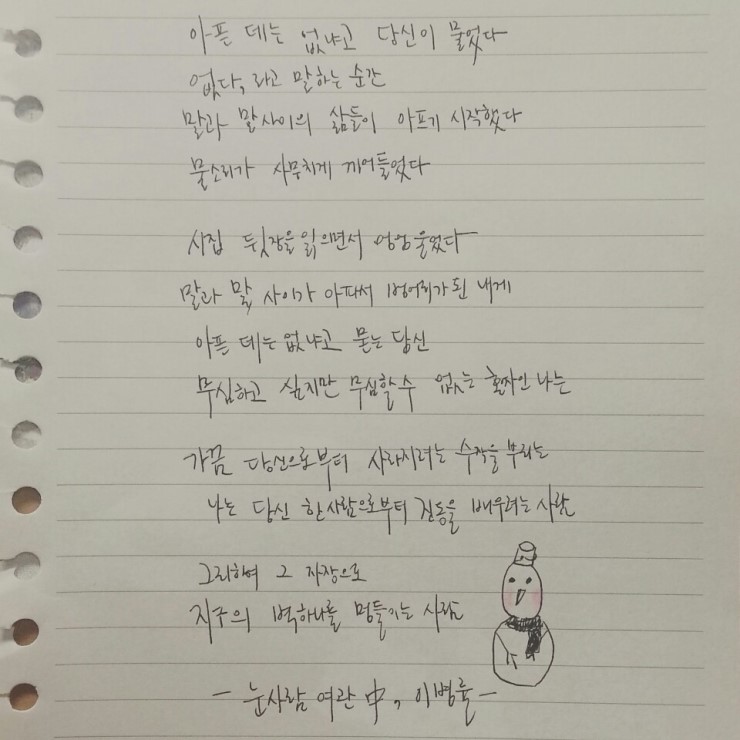 아픈 데는 없냐고 당신이 물었다
없다, 라고 말하는 순간
말과 말사이의 삶들이 아프기 시작했다
물소리가 사무치게 끼어들었다
시집 뒷장을 읽으면서 엉엉 울었다
말과 말 사이가 아파서 벙어리가 된 내게
아픈 데는 없냐고 묻는 당신
무심하고 싶지만 무심할 수 없는 혼자인 나는
가끔 당신으로부터 사라지려는 수작을 부리는
나는 당신 한 사람으로부터 진동을 배우려는 사람
그리하여 그 자장으로
지구의 벽 하나를 멍들이는 사람
- 눈사람 여관 中, 이병률 -